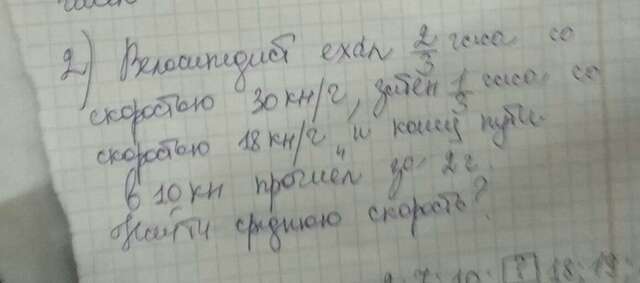 2) Велосипедист ехал 2/3 часа со
скоростью 30 км/г, затем 1/3 часа со
скоростью 18 км/г, и конец пути
в 10 км прошел за 2 г.
Найти среднюю скорость?
18; 19;